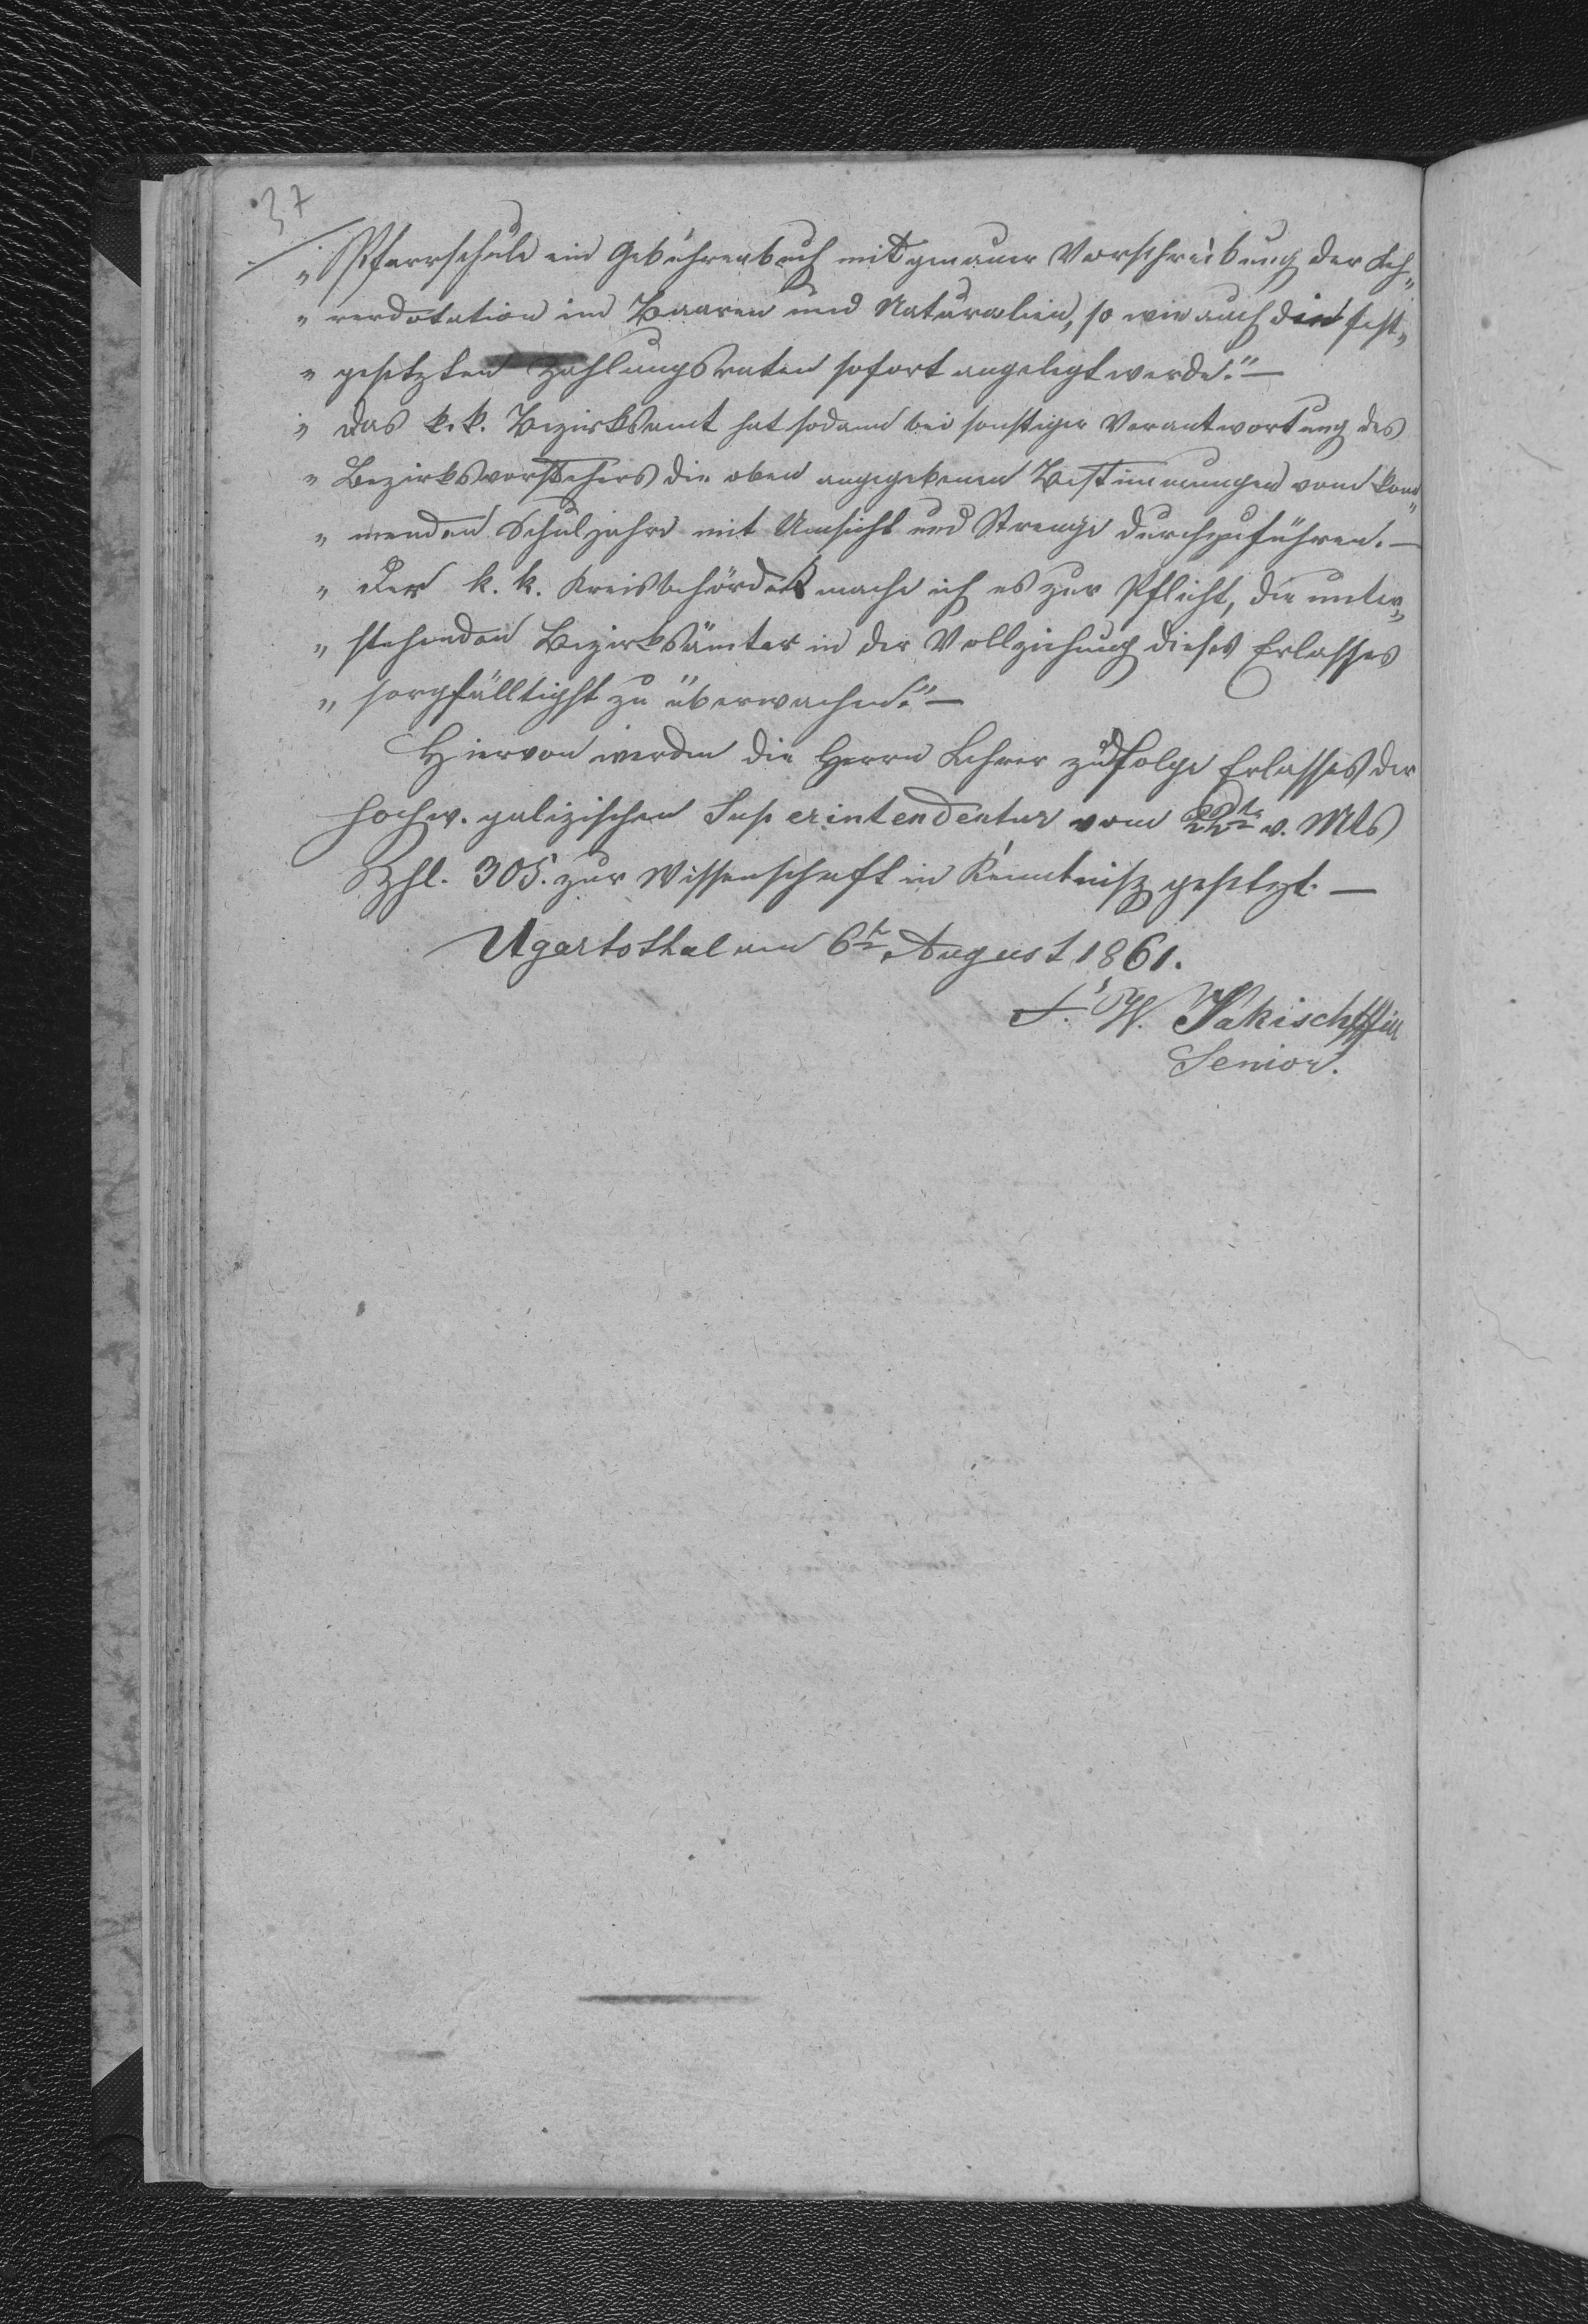 37
„ Pfarrschule ein Gebührenbuch mit genauer Vorschreibung der Leh„
„ rerdotation im Baaren und Naturalien, so wie auch die fest„
„ gesetzten Zahlungsraten sofort angelegt werde." —
„ Das k. k. Bezirksamt hat sodann bei sonstiger Verantwortung des
„ Bezirksvorstehers die oben angegebenen Bestimmungen vom kom„
„ menden Schuljahre mit Umsicht und Strenge durchzuführen. —
„ Der k. k. Kreisbehörde mache ich es zur Pflicht, die unter„
„ stehenden Bezirksämter in der Vollziehung dieses Erlasses
„ sorgfälltigst zu überwachen." —
Hiervon werden die Herrn Lehrer zufolge Erlasses der
hochw. galizischen Superintendentur vom 22t v. Mts
Zhl. 305. zur Wissenschaft in Kenntniß gesetzt. —
Ugartsthal am 6t August 1861.
W.
Senior.